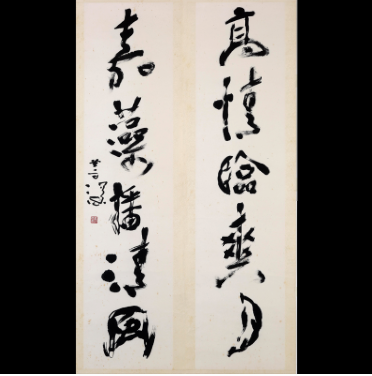 高情臨爽月
嘉藻播清風